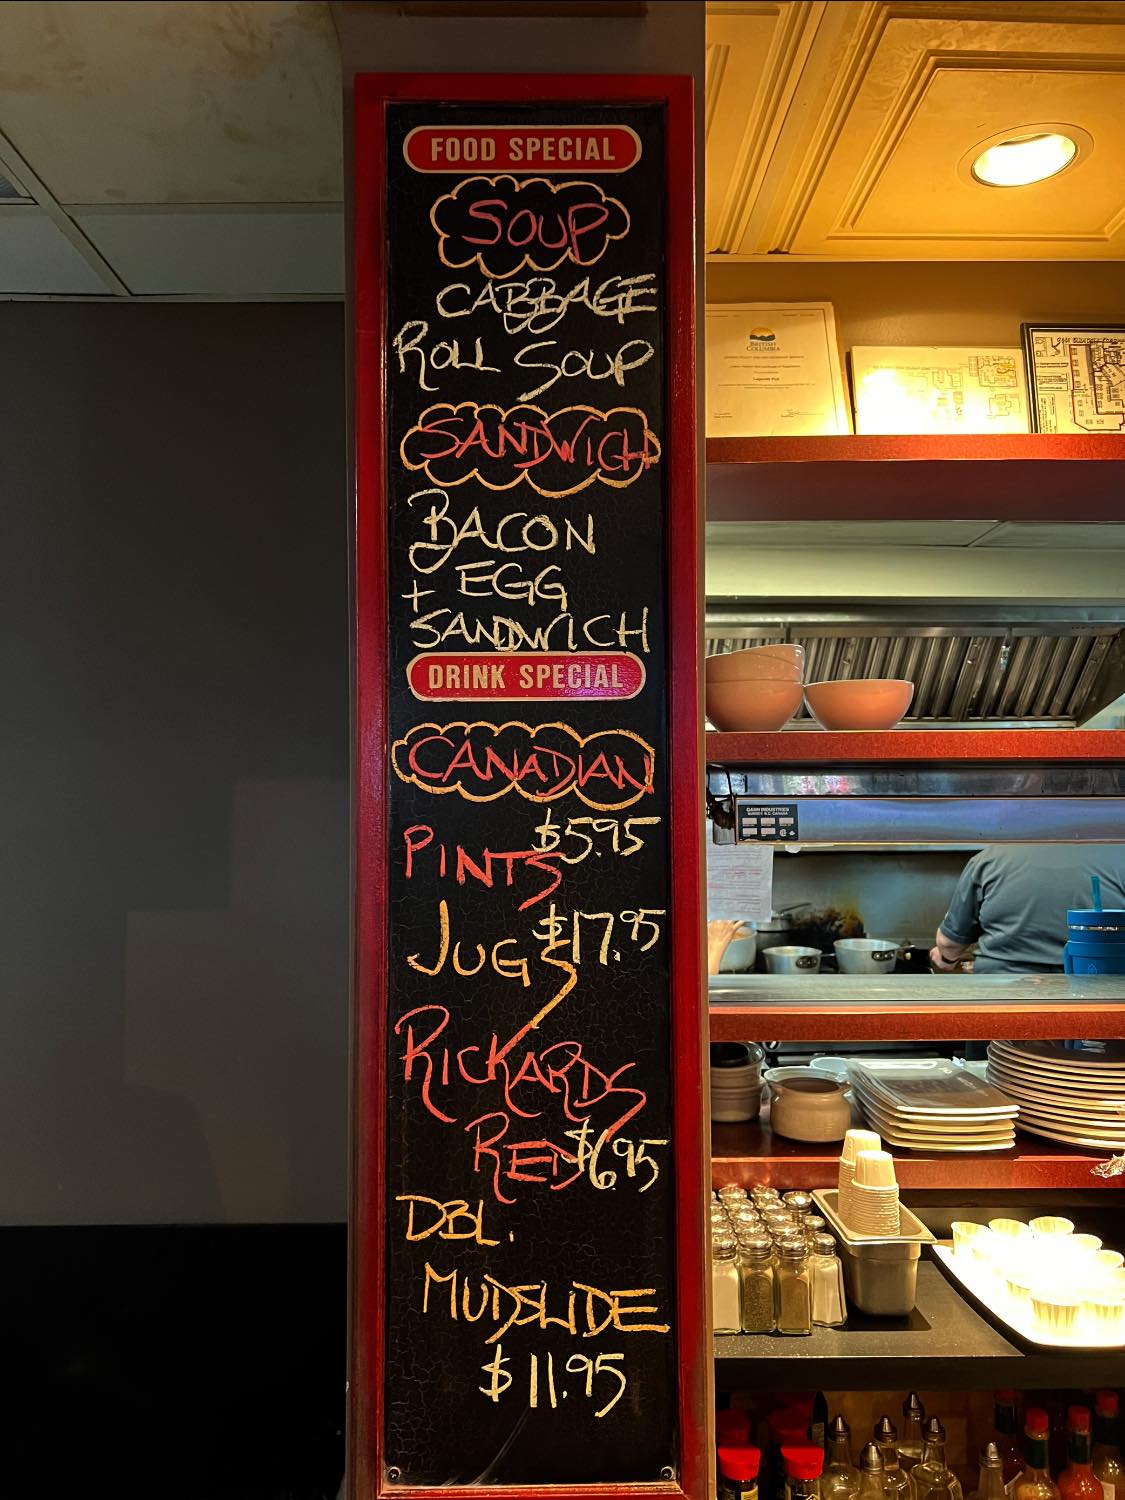 FOOD SPECIAL
SOUP
CABBAGE
ROLL SOUP
SANDWICH
BACON
+ EGG
SANDWICH
DRINK SPECIAL
CANADIAN
PINTS $5.95
JUGS $17.95
RICKARDS
RED $6.95
DBL.
MUDSLIDE
$11.95
BRITISH
COLUMBIA